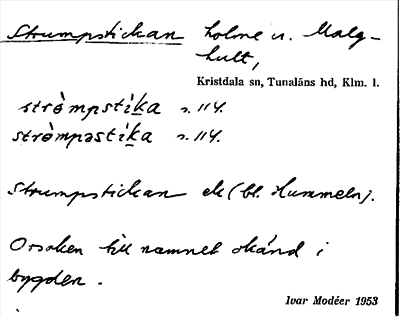 Strumpstickan holme v. Malg-
hult,
Kristdala sn, Tunaläns hd, Klm. l.
strømpstíka s. 114.
strømpəstíka s. 114.
Strumpstickan ek (bl. Hummeln).
Orsaken till namnet okänd i
bygden.
Ivar Modéer 1953